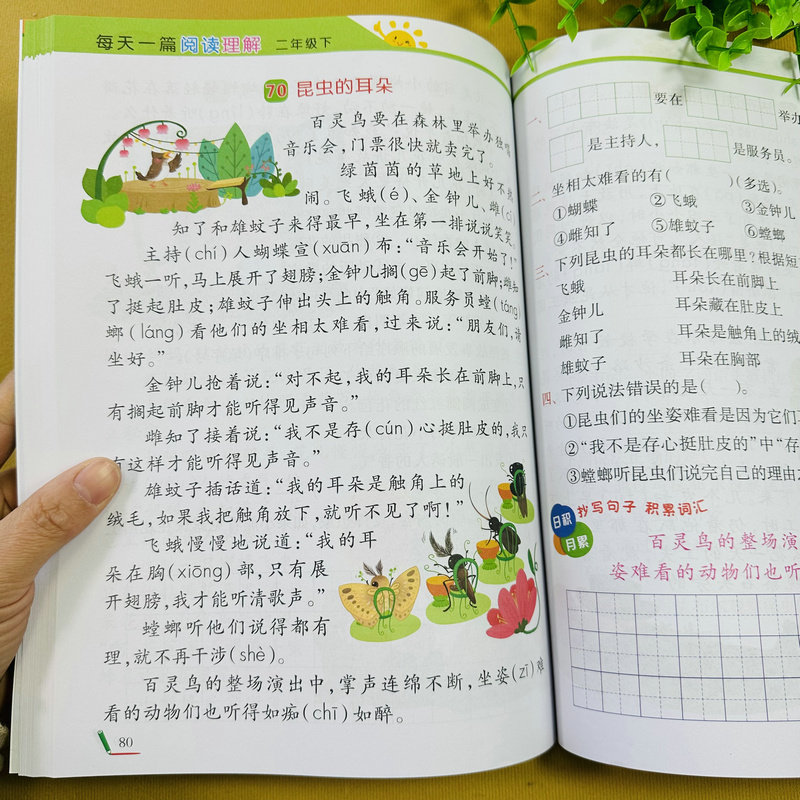 每天一篇阅读理解 二年级下
70 昆虫的耳朵
百灵鸟要在森林里举办独唱
音乐会,门票很快就卖完了。
绿茵茵的草地上好不热
闹。飞蛾(é)、金钟儿、雌(cí)
知了和雄蚊子来得最早,坐在第一排说说笑笑。
主持(chí)人蝴蝶宣(xuān)布:“音乐会开始了!”
飞蛾一听,马上展开了翅膀;金钟儿搁(gē)起了前脚;雌知
了挺起肚皮;雄蚊子伸出头上的触角。服务员螳(táng)
螂(láng)看他们的坐相太难看,过来说:“朋友们,请
坐好。”
金钟儿抢着说:“对不起,我的耳朵长在前脚上,只
有搁起前脚才能听得见声音。”
雌知了接着说:“我不是存(cún)心挺肚皮的,我只
有这样才能听得见声音。”
雄蚊子插话道:“我的耳朵是触角上的
绒毛,如果我把触角放下,就听不见了啊!”
飞蛾慢慢地说道:“我的耳
朵在胸(xiōng)部,只有展
开翅膀,我才能听清歌声。”
螳螂听他们说得都有
理,就不再干涉(shè)。
百灵鸟的整场演出中,掌声连绵不断,坐姿(zī)难
看的动物们也听得如痴(chī)如醉。
80
一、
要在
举办
是主持人,
是服务员。
二、坐相太难看的有( )(多选)。
①蝴蝶 ②飞蛾 ③金钟儿
④雌知了 ⑤雄蚊子 ⑥螳螂
三、下列昆虫的耳朵都长在哪里?根据短
飞蛾 耳朵长在前脚上
金钟儿 耳朵藏在肚皮上
雌知了 耳朵是触角上的绒
雄蚊子 耳朵在胸部
四、下列说法错误的是( )。
①昆虫们的坐姿难看是因为它们
②“我不是存心挺肚皮的”中“存
③螳螂听昆虫们说完自己的理由
日积月累
找写句子 积累词汇
百灵鸟的整场演
姿难看的动物们也听